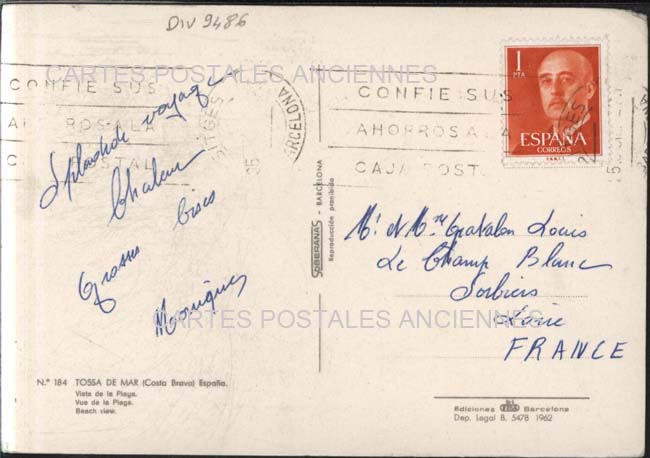 DIV 9486
CARTES POSTALES ANCIENNES
CONFIE SUS
AHORROS A LA
CAJA POSTAL
BARCELONA
CONFIE SUS
AHORROS A LA
CAJA POSTAL
1
PTA
ESPAÑA
CORREOS
Splendide voyage
Chaleur
Grosses bises
Monique
SOBERANAS - BARCELONA
Reproducción prohibida
Mr et Mme Louis
Le Champ Blanc
Sorbiers
Loire
FRANCE
CARTES POSTALES ANCIENNES
N.º 184 TOSSA DE MAR (Costa Brava) España.
Vista de la Playa.
Vue de la Plage.
Beach view.
Ediciones Barcelona
Dep. Legal B. 5478 1962